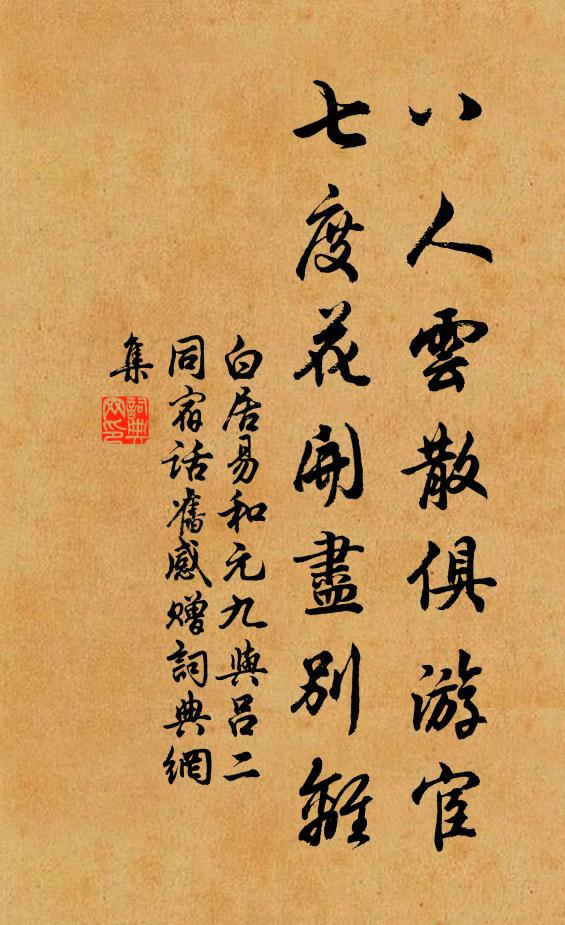 八人雲散俱游宦
七度花開盡別離
白居易和元九與呂二
同宿話舊感贈詞典網
集
詞典
网印